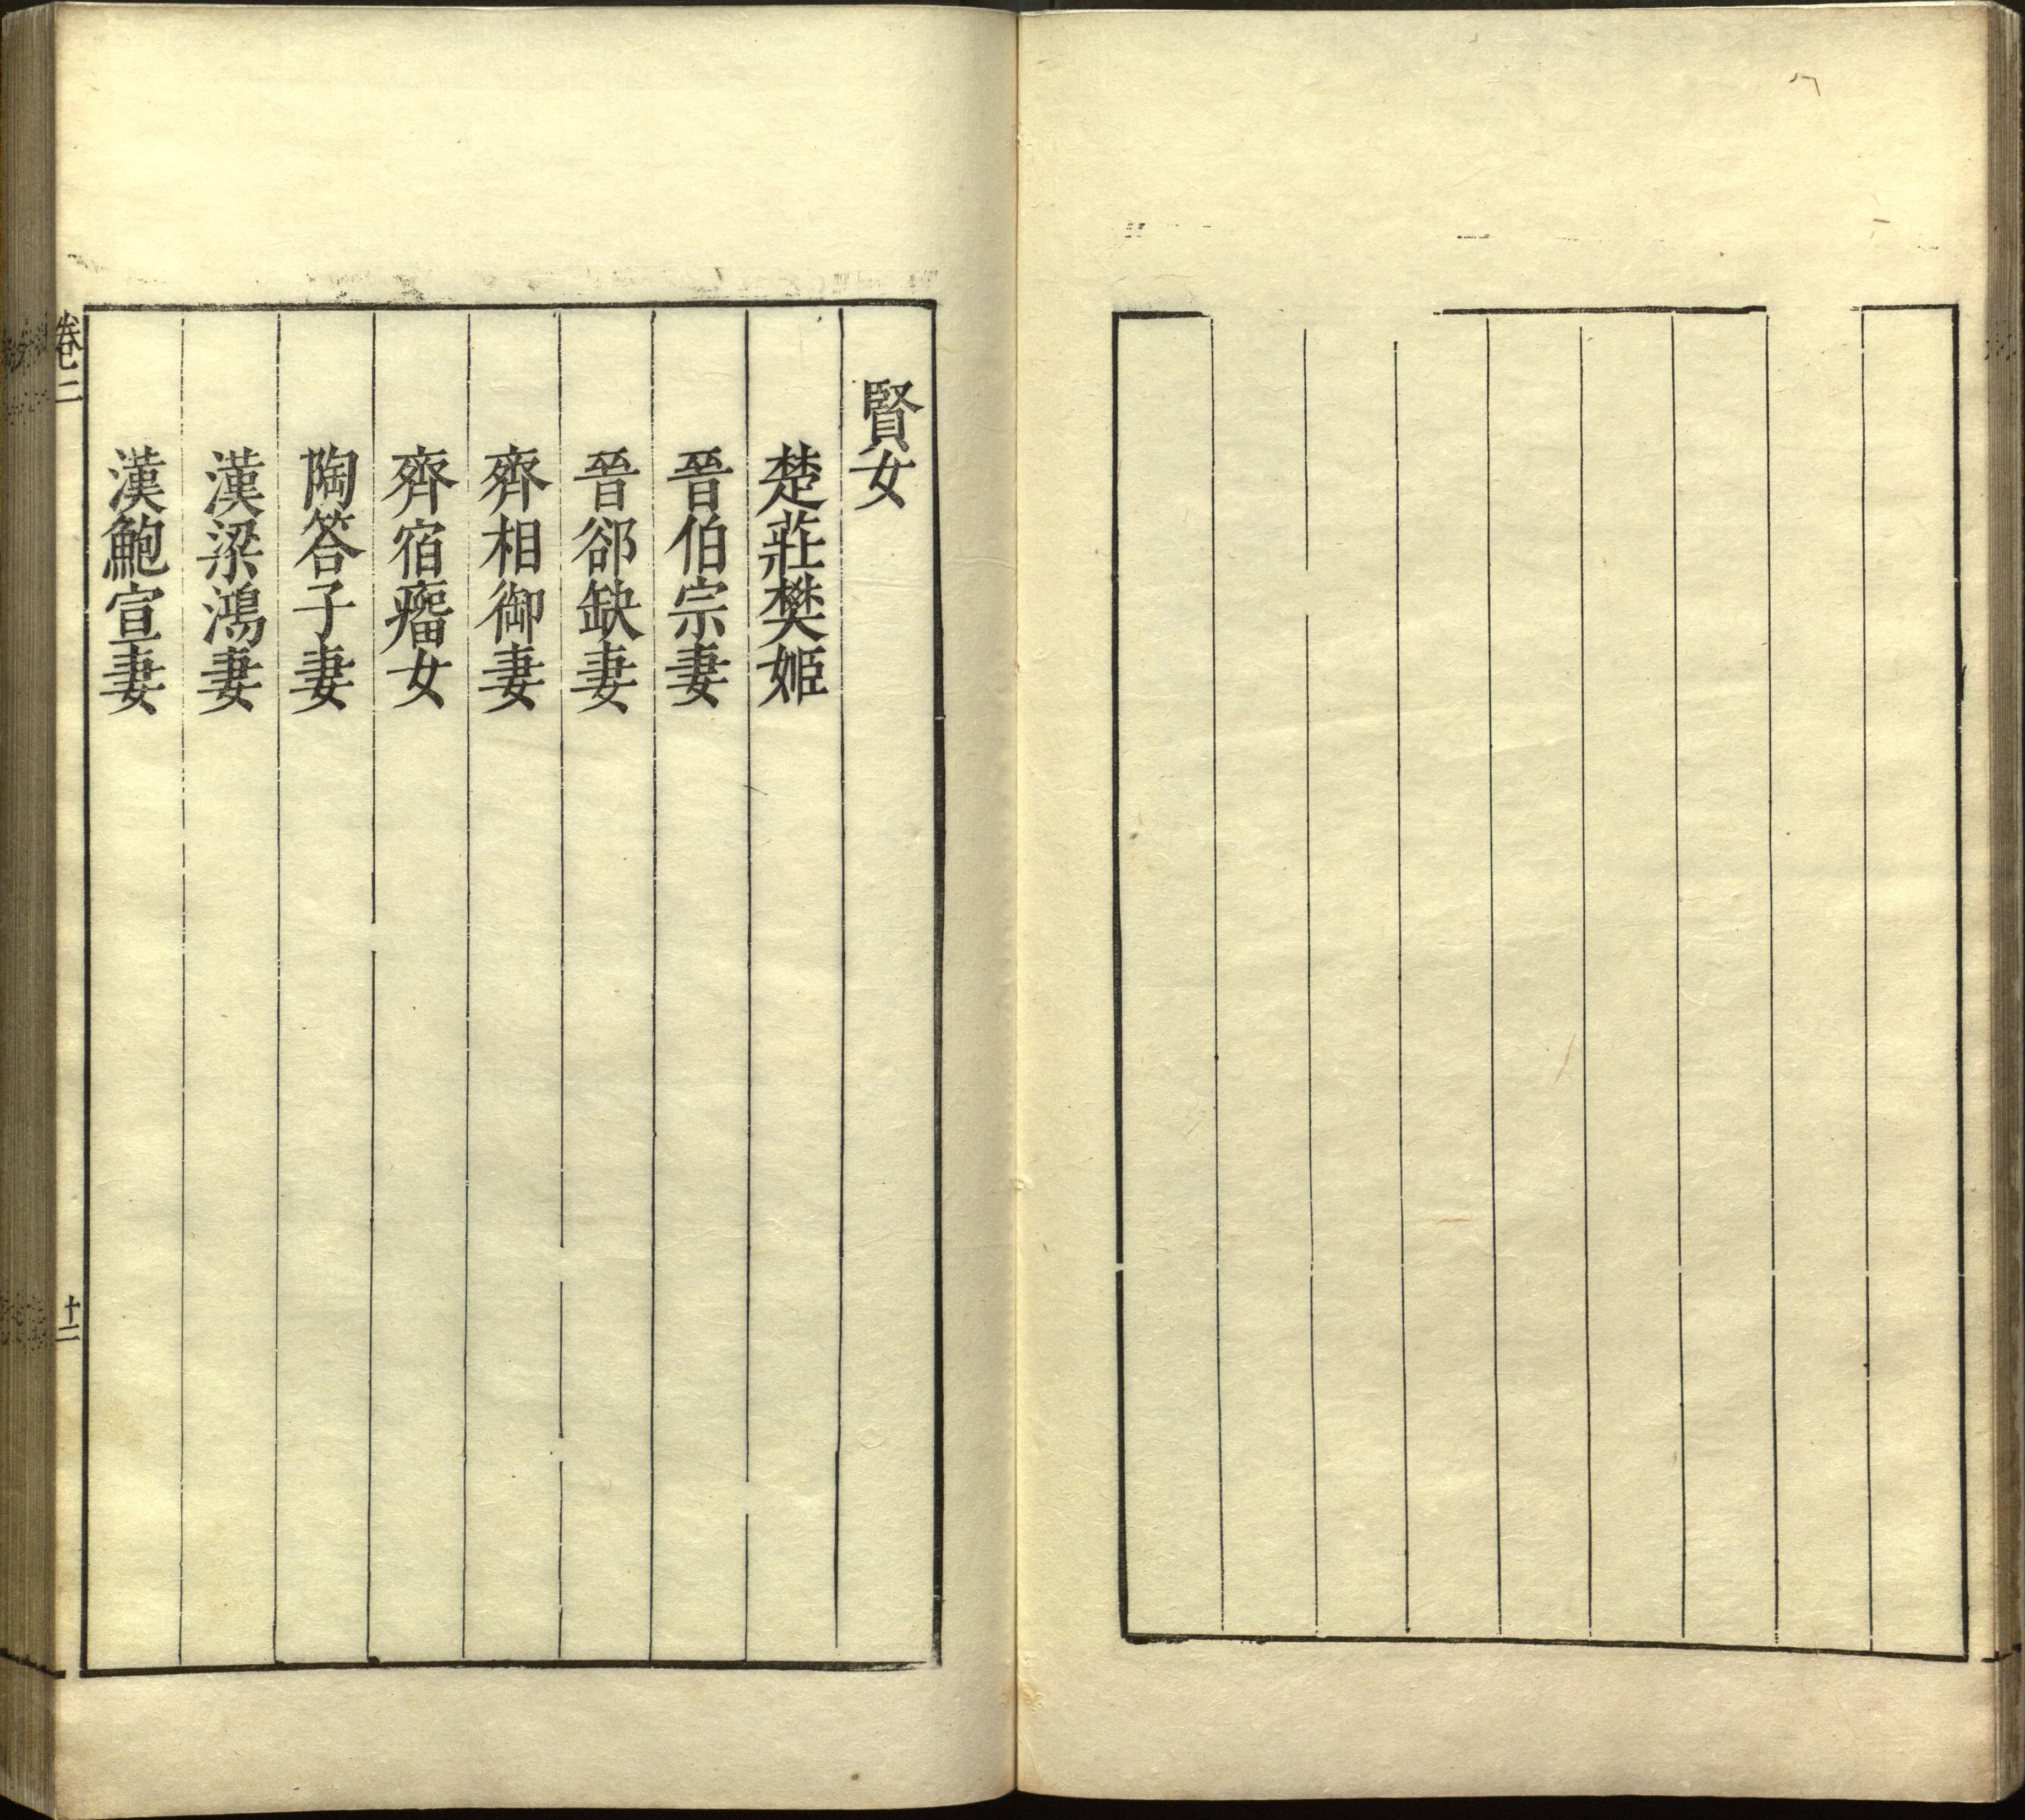 賢女
楚莊樊姬
晉伯宗妻
晉郤缺妻
齊相御妻
齊宿瘤女
陶答子妻
漢梁鴻妻
漢鮑宣妻
卷二
十二